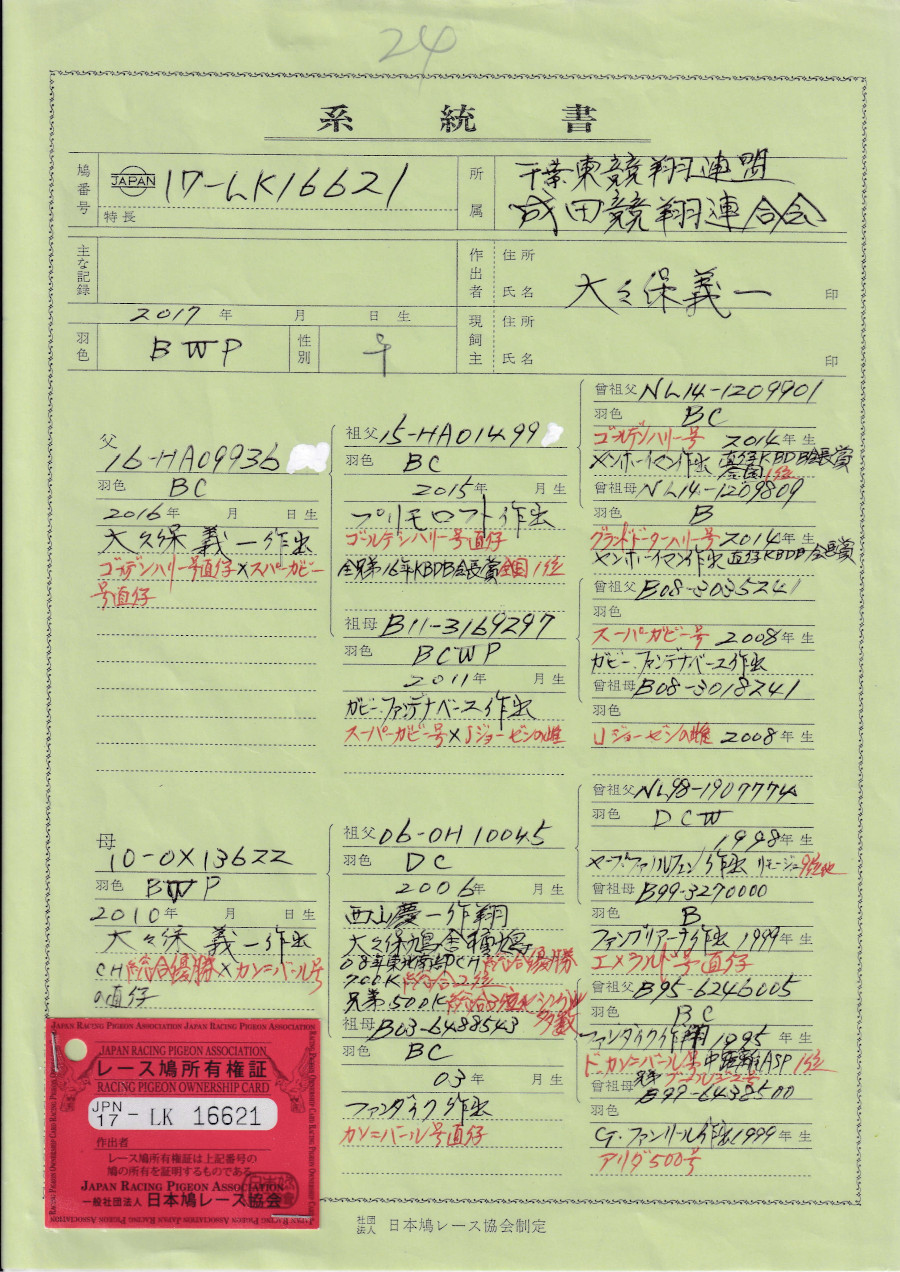 24
系統書
鳩番号 JAPAN 17-LK16621
特長
所属 千葉東競翔連盟
成田競翔連合会
主な記録
2017年 月 日生
作出者 住所
氏名 大久保義一 印
羽色 BWP 性別 ♀
現飼主 住所
氏名 印
父
16-HA09936
羽色 BC
2016年 月 日生
大久保義一作出
ゴールデンハリー号直仔×スーパーガビー
号直仔
祖父 15-HA01499
羽色 BC
2015年 月生
プリモロフト作出
ゴールデンハリー号直仔
全兄弟16年KBDB会長賞全国1位
祖母 B11-3169297
羽色 BCWP
2011年 月生
ガビー・ファンデナベーレ作出
スーパーガビー号×Jジョーゼンの雌
曾祖父 NL14-1209901
羽色 BC
ゴールデンハリー号 2014年生
ヤンホーイマン作出 直仔KBDB会長賞
全国1位
曾祖母 NL14-1209809
羽色 B
グランドドーターハリー号 2014年生
ヤンホーイマン作出 直仔KBDB会長賞
曾祖父 B08-3035241
羽色
スーパーガビー号 2008年生
ガビー・ファンデナベーレ作出
曾祖母 B08-3018241
羽色
Jジョーゼンの雌 2008年生
母
10-0X13622
羽色 BWP
2010年 月 日生
大久保義一作出
CH総合優勝×カンニバール号
の直仔
祖父 06-0H10045
羽色 DC
2006年 月生
西山慶一作翔
大久保鳩舎種鳩
08年東北南部CH総合優勝
700K総合2位
兄弟500K総合3位 多数
祖母 B03-6488543
羽色 BC
03年 月生
ファンダイク作出
カンニバール号直仔
曾祖父 NL98-1907774
羽色 DCW
1998年生
作出 リモージュ9位他
曾祖母 B99-3270000
羽色 B
ファンブリアーナ作出 1999年生
エメラルド号直仔
曾祖父 B95-6246005
羽色 BC
ファンダイク作翔 1995年生
ド・カンニバール号 中距離ASP1位
曾祖母 B99-6438500
羽色
G・ファンリール作出 1999年生
アリダ500号
JAPAN RACING PIGEON ASSOCIATION
レース鳩所有権証
RACING PIGEON OWNERSHIP CARD
JPN 17 - LK 16621
作出者
レース鳩所有権証は上記番号の
鳩の所有を証明するものである。
JAPAN RACING PIGEON ASSOCIATION
一般社団法人 日本鳩レース協会
社団法人 日本鳩レース協会制定